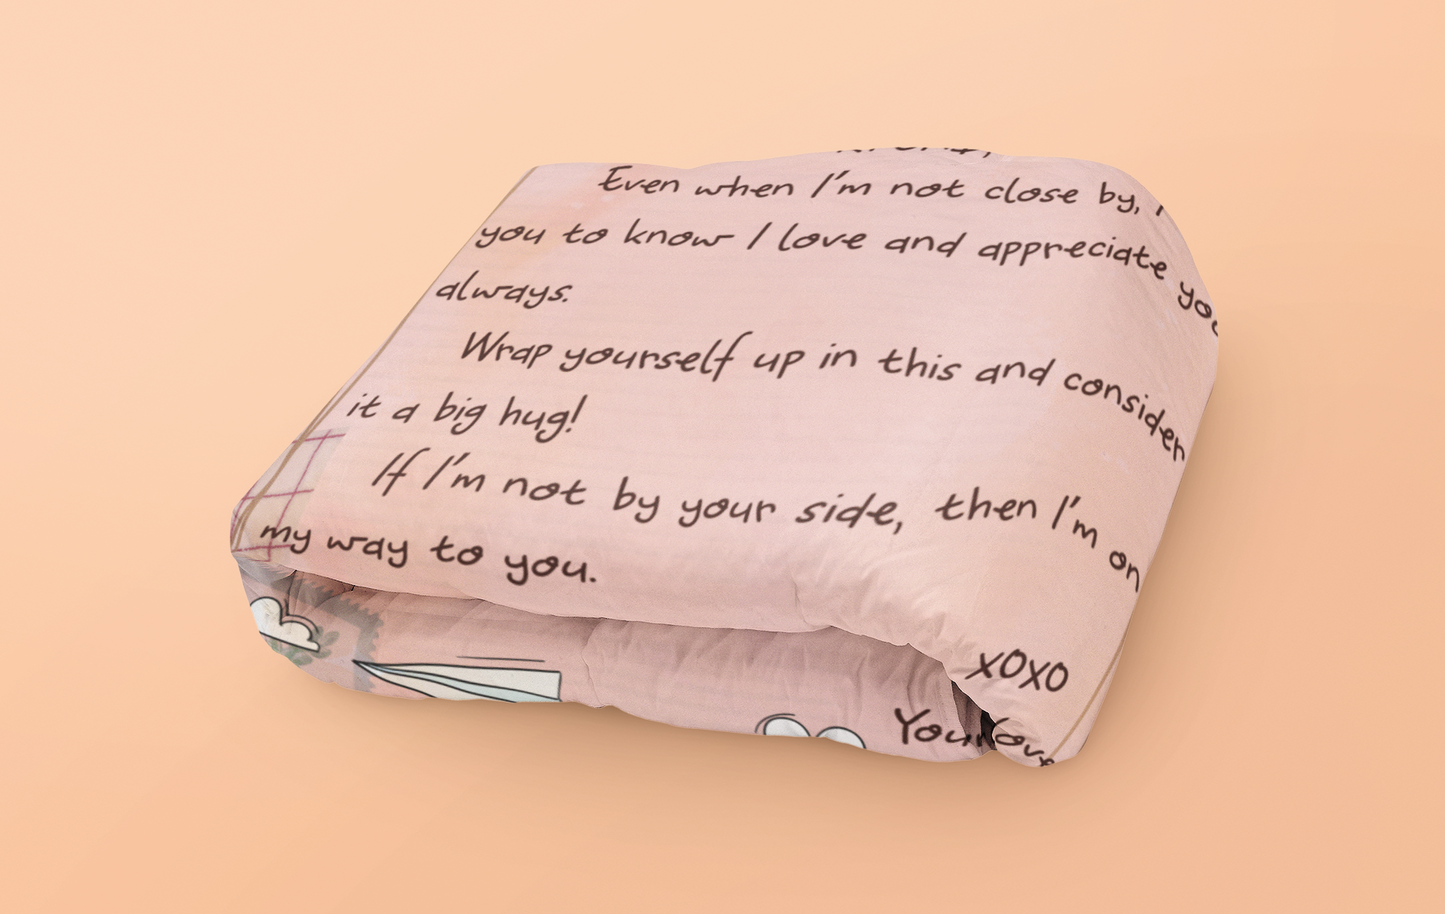 Even when I'm not close by, I
you to know I love and appreciate you
always.
Wrap yourself up in this and consider
it a big hug!
If I'm not by your side, then I'm on
my way to you.
XOXO
Your love